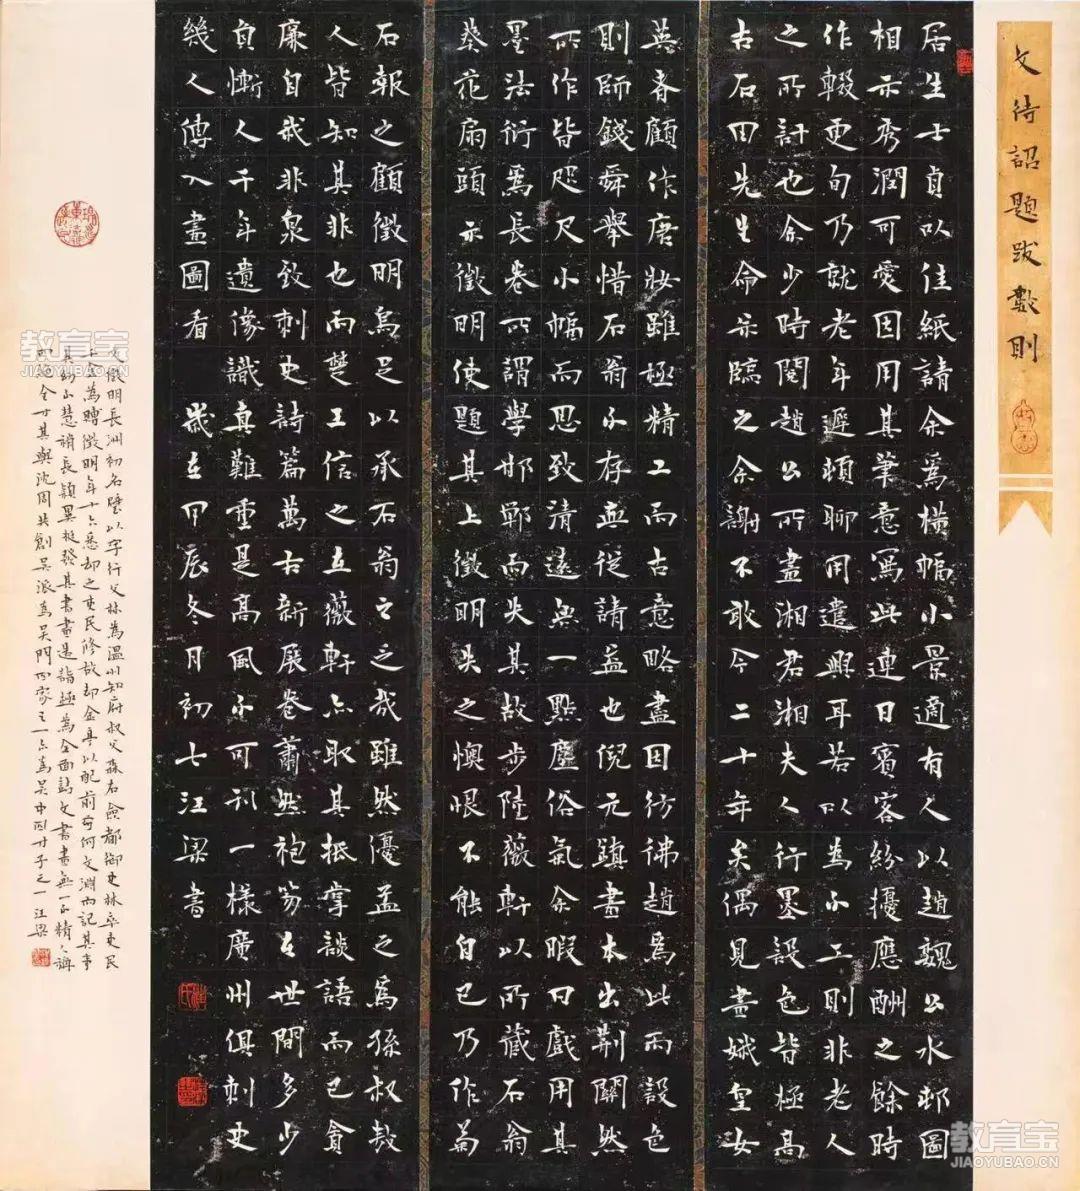 文待詔題跋數則
居生士貞以佳紙請余爲橫幅小景適有人以趙魏公水邨圖
相示秀潤可愛因用其筆意寫此連日賓客紛擾應酬之餘時
作輟更旬乃就老年遲頓聊用遣興耳若以為不工則非老人
之所計也余少時閱趙公所畫湘君湘夫人行墨設色皆極高
古石田先生命余臨之余謝不敢今二十年矣偶見畫娥皇女
英者顧作唐妝雖極精工而古意略盡因彷彿趙爲此而設色
則師錢舜舉惜石翁不存無從請益也倪元鎮畫本出荆關然
所作皆咫尺小幅而思致清遠無一點塵俗氣余暇日戲用其
墨法衍爲長卷所謂學邯鄲而失其故步陸薇軒以所藏石翁
葵花扇頭示徵明使題其上徵明失之懊恨不能自已乃作菊
石報之顧徵明烏足以承石翁之乏哉雖然優孟之爲孫叔敖
人皆知其非也而楚王信之立薇軒亦取其抵掌談語而已貪
廉自我非泉致刺史詩篇萬古新展卷蕭然袍笏在世間多少
貞慚人千年遺像識真難重是高風不可刊一樣廣州俱刺史
幾人傳入畫圖看 歲在甲辰冬月初七江梁書
文徵明長洲初名壁以字行父林為溫州知府叔父森右僉都御史林卒吏民
千金為賻徵明年十六悉却之吏民修故却金亭以配前守何文淵而記其事